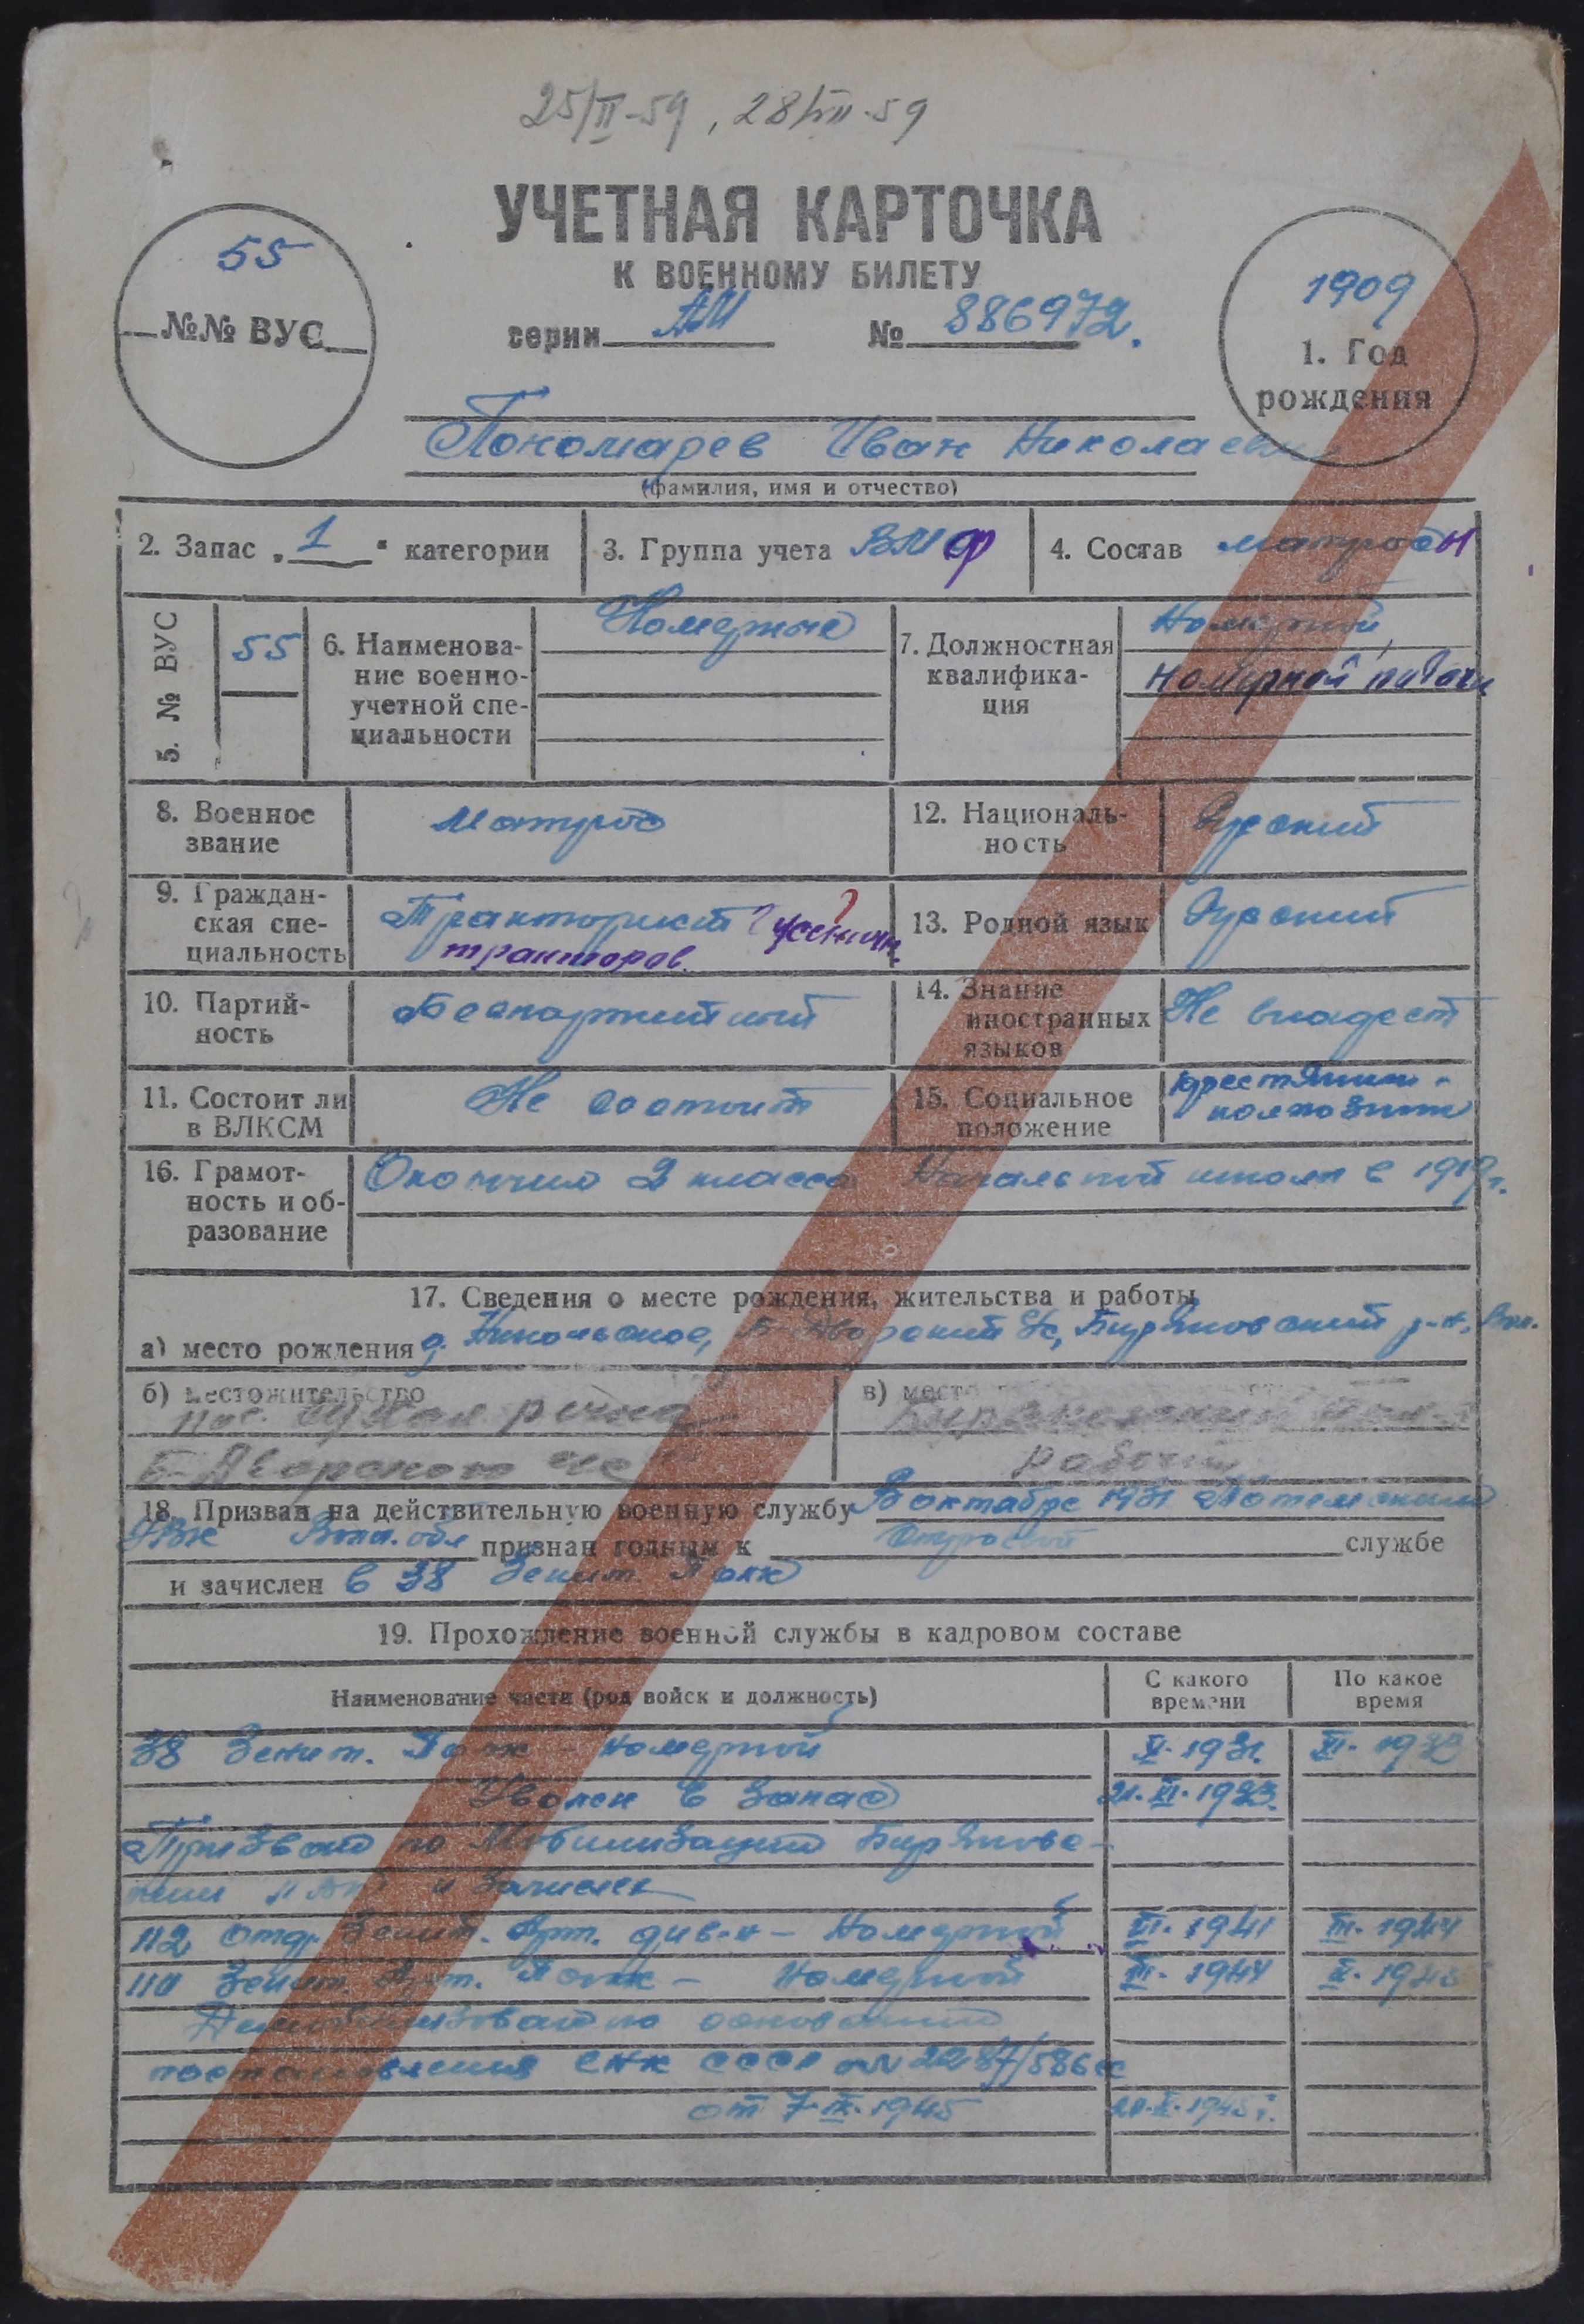 25/II-59, 28/VII-59
УЧЕТНАЯ КАРТОЧКА
К ВОЕННОМУ БИЛЕТУ
серии АИ № 886972.
55
№№ ВУС
1909
1. Год
рождения
Пономарев Иван Николаевич
(фамилия, имя и отчество)
2. Запас „1“ категории
3. Группа учета ВМФ
4. Состав матросы
5. № ВУС 55
6. Наименова-
ние военно-
учетной спе-
циальности
Номерные
7. Должностная
квалифика-
ция
Номерной,
номерной
8. Военное
звание
Матрос
12. Националь-
ность
Русский
9. Граждан-
ская спе-
циальность
Тракторист гусеничн.
тракторов.
13. Родной язык
Русский
10. Партий-
ность
Беспартийный
14. Знание
иностранных
языков
Не владеет
11. Состоит ли
в ВЛКСМ
Не состоит
15. Социальное
положение
крестьянин-
колхозник
16. Грамот-
ность и об-
разование
Окончил 2 класса Начальной школы в 1919г.
17. Сведения о месте рождения, жительства и работы
а) место рождения д. Никольское, Б-Дворский с/с, Биряковский р-н, Вол.
б) местожительство
пос. речка
Б-Дворского с/с
в) место
Биряковский
рабочий
18. Призван на действительную военную службу В октябре 1931 Тотемским
РВК Волог. обл признан годным к строевой службе
и зачислен в 38 Зенит. Полк
19. Прохождение военной службы в кадровом составе
Наименование части (род войск и должность)
С какого
времени
По какое
время
38 Зенит. Полк - номерной X-1931. XI-1933
Уволен в запас 21.XI.1933.
Призван по Мобилизации Биряковс-
ким РВК и Зачислен
112 отд. Зенит. Арт. див-н - Номерной VI-1941 III-1944
110 Зенит. Арт. Полк - Номерной III-1944 X-1945
Демобилизован на основании
постановления СНК СССР
от 7.IX.1945 20.X.1945г.